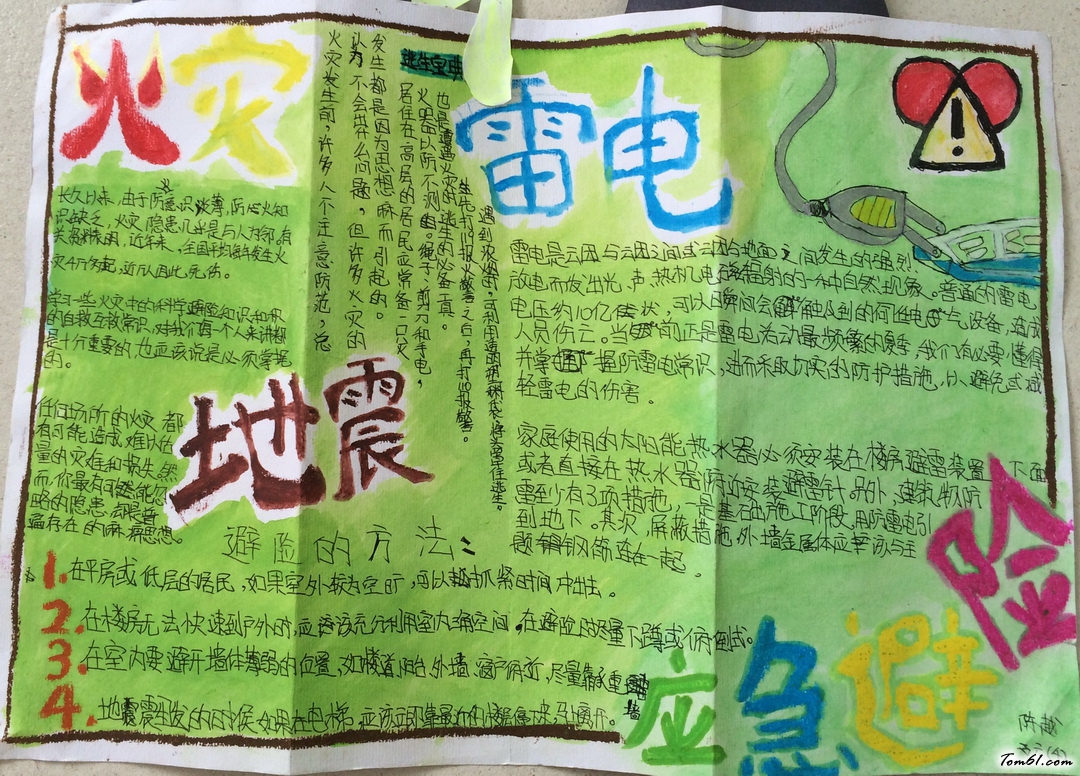 火灾
长久以来，由于防火意识淡薄，防火知
识缺乏，火灾隐患几乎是与人为邻。有
关资料表明，近年来，全国平均每年发生火
灾4万多起，近万人因此死伤。
学习一些火灾中的科学避险知识和积
的自救互救常识，对我们每一个人来讲都
是十分重要的，也应该说是必须掌握
的。
任何场所的火灾都
有可能造成难以估
量的灾难和损失。然
而，你最有可能忽
略的隐患，却是普
遍存在的麻痹思想。
火灾发生前，许多人不注意防范，总
认为不会出什么问题，但许多火灾的
发生都是因为思想麻痹而引起的。
逃生宝典
居住在高层的居民应常备一只灭
火器以防不测。绳子、剪刀和手电，
也是遭遇火灾的逃生的必备工具。
生先打119报火警之后，再打110报警。
雷电
雷电是云团与云团之间或云团与地面之间发生的强烈
放电而发出光、声、热和电磁辐射的一种自然现象。普通的雷电，
电压约10亿伏，可以瞬间会解触及到的何性电气设备，造成
人员伤亡。当前正是雷电活动最频繁的夏季，我们有必要懂得
并掌握防雷电常识，进而采取切实的防护措施，以避免或减
轻雷电的伤害。
家庭使用的太阳能热水器必须安装在楼房避雷装置下面
或者直接在热水器附近安装避雷针。另外，建筑物防
雷至少有3项措施，一是基础施工阶段，用防雷电引
到地下。其次，屏蔽措施，外墙金属体应该与主
题钢筋连在一起。
地震
避险的方法：
1.在平房或低层的居民，如果室外较为空旷，可以抓紧时间冲出。
2.在楼房无法快速到户外时，应该充分利用室内三角空间，在避险时尽量下蹲或俯倒式。
3.在室内要避开墙体薄弱的位置，如楼道、阳台、外墙、窗户附近，尽量靠承重墙
4.地震发生的时候，如果在电梯，应该立即靠最近的楼层停下来，马上离开。
应急避险
陈越
Tom61.com